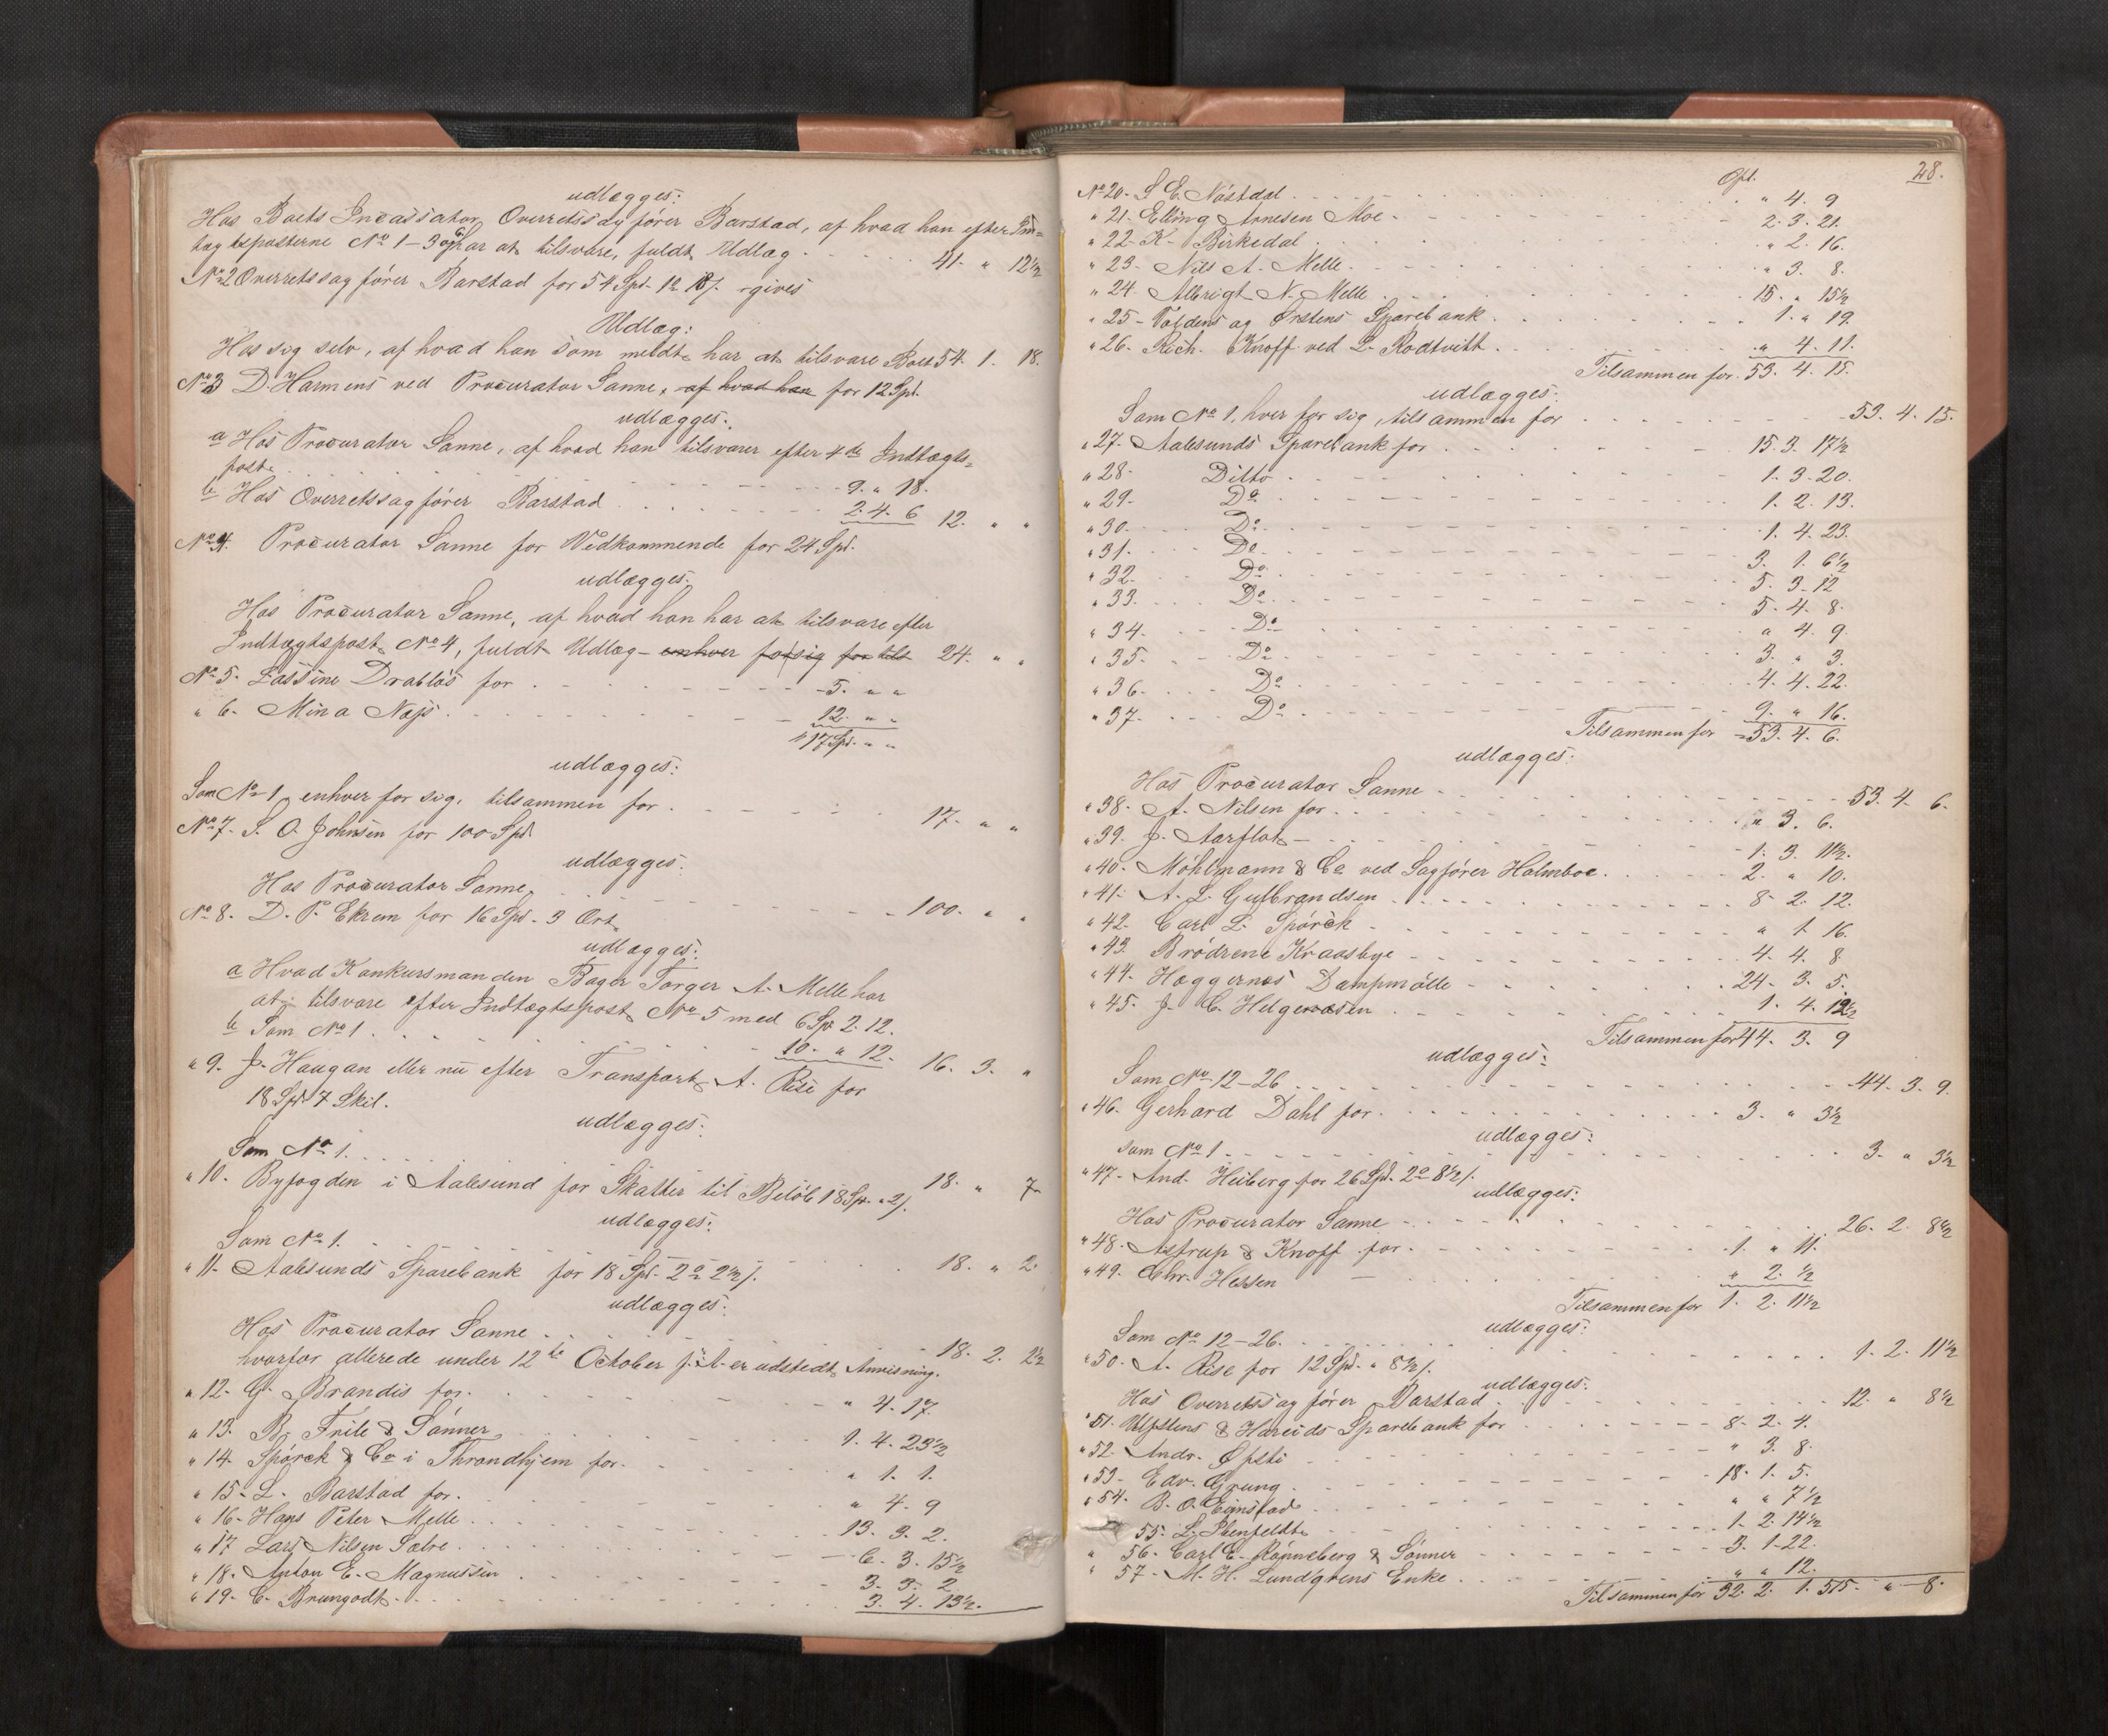 udlægges:
Hos Boets Incassator, Overretssagfører Barstad, af hvad han efter Ind=
tægtsposterne No 1-3 og 6 har at tilsvare, fuldt Udlæg . . . . 41. " 12½
No 2 Overretssagfører Barstad for 54 Spd. 1 18 /. gives
Udlæg:
Hos sig selv, af hvad han som meldt har at tilsvare Boet 54. 1. 18.
No 3 D. Harmens ved Procurator Sanne, af hvad han for 12 Spd.
udlægges:
a Hos Procurator Sanne, af hvad han tilsvarer efter 4de Indtægts=
post . . . . 9. " 18.
b Hos Overretssagfører Barstad . . . . 2. 4. 6 12. " "
No 4. Procurator Sanne for Vedkommende for 24 Spd.
udlægges:
Hos Procurator Sanne, af hvad han har at tilsvare efter
Indtægtspost No 4, fuldt Udlæg - enhver for sig for tils 24. " "
No 5. Lassine Drabløs for . . . . 5. " "
" 6. Mina Nejs . . . . 12. " "
17 Spd. " "
udlægges:
Som No 1, enhver for sig, tilsammen for . . . . 17. " "
No 7. S. O. Johnsen for 100 Spd.
udlægges:
Hos Procurator Sanne . . . . 100. " "
No 8. D. P. Ekrem for 16 Spd. 3 Ort
udlægges:
a Hvad Konkursmanden Bager Torger A. Melle har
at tilsvare efter Indtægtspost No 5 med 6 Sp 2. 12.
b Som No 1. . . . . 10. " 12. 16. 3. "
" 9. J. Haugan eller nu efter Transport A. Rise for
18 Spd. 7 Skil.
udlægges:
Som No 1. . . . . 18. " 7
" 10. Byfogden i Aalesund for Skatter til Beløb 18 Sp. " 2 /.
udlægges:
Som No 1. . . . . 18. " 2.
" 11. Aalesunds Sparebank for 18 Spd. 2 2½ /.
udlægges:
Hos Procurator Sanne . . . . 18. 2. 2½
hvorfor allerede under 12te October er udstedt Anvisning.
" 12. G. Brandis for . . . . " 4. 17.
" 13. B. Frile & Sønner . . . . 1. 4. 23½
" 14. Spørck & Co i Throndhjem for . . . . " 1. 1.
" 15. L. Barstad for . . . . " 4. 9
" 16. Hans Peter Melle . . . . 13. 3. 2.
" 17 Lars Nilsen Sætre . . . . 6. 3. 15½
" 18. Anton E. Magnussen . . . . 3. 3. 2.
" 19. C. Brungodt . . . . 3. 4. 13½.
28.
Spd.
No 20. S E. Nøstdal . . . . " 4. 9
" 21. Elling Arnesen Moe . . . . 2. 3. 21.
" 22. K. Birkedal . . . . " 2. 16.
" 23. Nils A. Melle . . . . " 3. 8.
" 24. Albrigt N. Melle . . . . 15. " 15½
" 25 - Voldens og Ørstens Sparebank . . . . 1. " 19.
" 26. Rich. Knoff ved L. Rodtvitt . . . . " 4. 11.
Tilsammen for 53. 4. 15.
udlægges:
Som No 1, hver for sig, tilsammen for . . . . 53. 4. 15.
" 27. Aalesunds Sparebank for . . . . 15. 3. 17½
" 28 Ditto . . . . 1. 3. 20.
" 29. Do . . . . 1. 2. 13.
" 30. Do . . . . 1. 4. 23.
" 31. Do . . . . 3. 1. 6½
" 32. Do . . . . 5. 3. 12
" 33. Do . . . . 5. 4. 8.
" 34. Do . . . . " 4. 9.
" 35. Do . . . . 3. " 3.
" 36. Do . . . . 4. 4. 22.
" 37. Do . . . . 9. " 16.
Tilsammen for 53. 4. 6.
udlægges:
Hos Procurator Sanne . . . . 53. 4. 6.
" 38. A. Nilsen for . . . . " 3. 6.
" 39. J. Aarflot . . . . 1. 3. 11½.
" 40. Møhlmann & Co ved Sagfører Holmboe . . . . 2. " 10.
" 41. A. L. Gulbrandsen . . . . 8. 2. 12.
" 42. Carl L. Spørck . . . . " 1. 16.
" 43. Brødrene Kraasbye . . . . 4. 4. 8
" 44. Hæggernæs Dampmølle . . . . 24. 3. 5.
" 45. J. C. Helgevæsen . . . . 1. 4. 12½
Tilsammen for 44. 3. 9
udlægges:
Som No 12-26 . . . . 44. 3. 9.
" 46. Gerhard Dahl for . . . . 3. " 3½
udlægges:
som No 1 . . . . 3. " 3½
" 47. And. Heiberg for 26 Spd. 2 8½ /.
udlægges:
Hos Procurator Sanne . . . . 26. 2. 8½
" 48. Astrup & Knoff for . . . . 1. " 11.
" 49. Chr. Hessen . . . . " 2. ½
Tilsammen for 1. 2. 11½
udlægges:
Som No 12-26. . . . . 1. 2. 11½
" 50. A. Rise for 12 Spd. " 8½ /.
udlægges:
Hos Overretssagfører Barstad . . . . 12. " 8½
" 51. Ulfstens & Hareids Sparebank for . . . . 8. 2. 4.
" 52. Andr. Øpsti . . . . " 3. 8.
" 53. Edv. Grung . . . . 18. 1. 5.
" 54. B. O. Egnstad . . . . " " 7½
55. L. Ibenfeldt . . . . 1. 2. 14½
" 56. Carl E. Rønneberg & Sønner . . . . 3. 1. 22.
" 57. M. H. Lundgrens Enke . . . . " " 12.
Tilsammen for 32. 2. 1. 515. " 8.